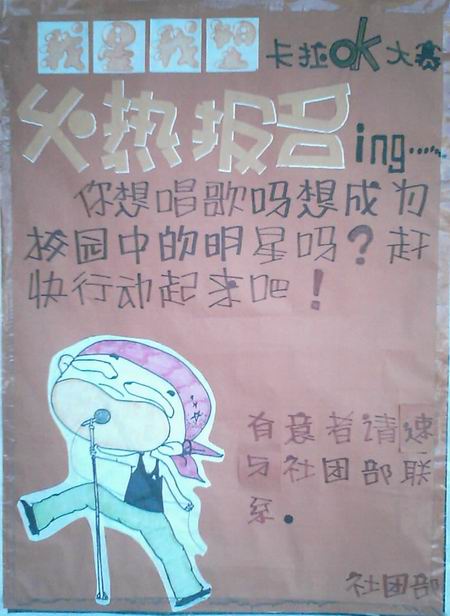 我是我 卡拉OK大赛
火热报名ing……
你想唱歌吗想成为
校园中的明星吗？赶
快行动起来吧！
有意者请速
与社团部联
系。
社团部